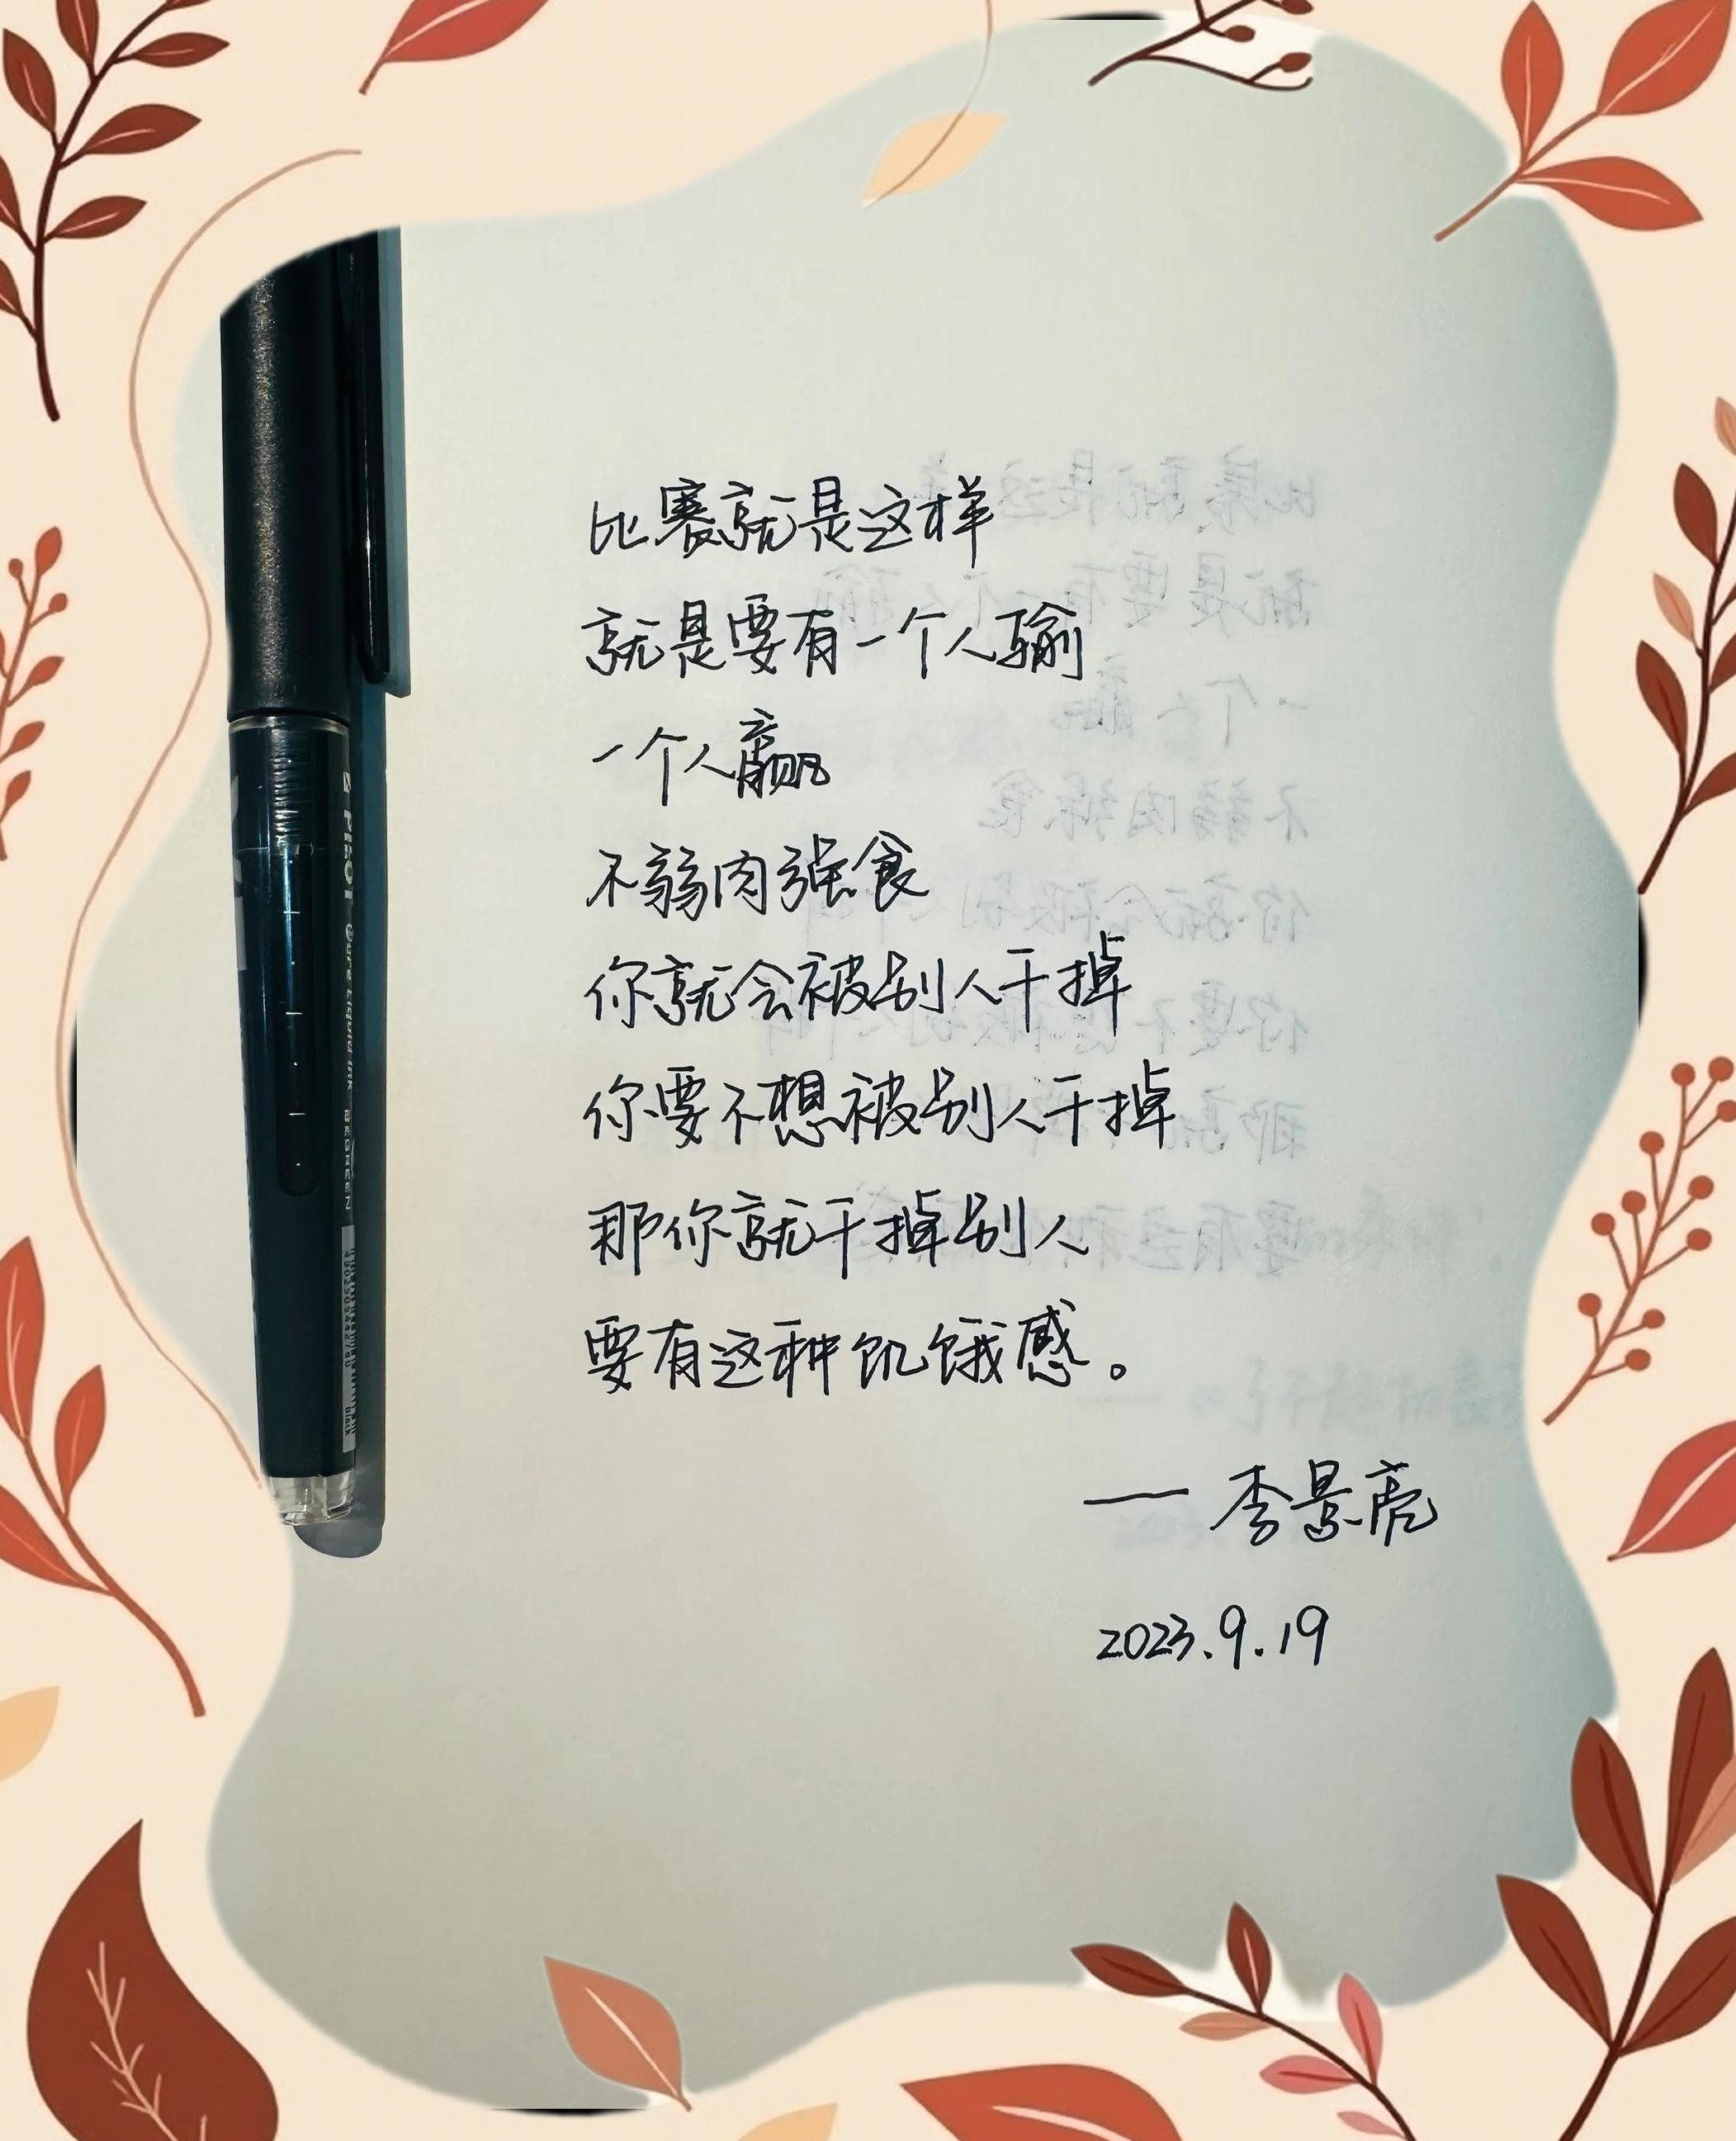 比赛就是这样
就是要有一个人输
一个人赢
不弱肉强食
你就会被别人干掉
你要不想被别人干掉
那你就干掉别人
要有这种饥饿感。
——李景亮
2023.9.19
PILOT